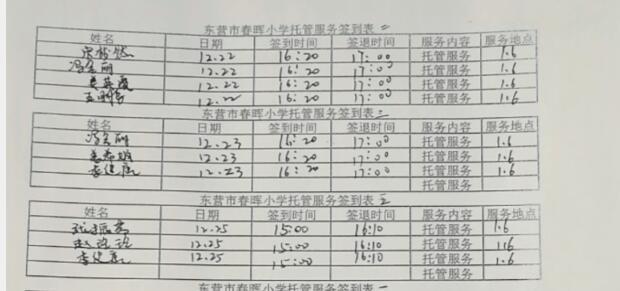 东营市春晖小学托管服务签到表二
姓名 日期 签到时间 签退时间 服务内容 服务地点
12.22 16:20 17:00 托管服务 1.6
12.22 16:20 17:00 托管服务 1.6
12.22 16:20 17:00 托管服务 1.6
12.22 16:20 17:00 托管服务 1.6
东营市春晖小学托管服务签到表三
姓名 日期 签到时间 签退时间 服务内容 服务地点
12.23 16:20 17:00 托管服务 1.6
12.23 16:20 17:00 托管服务 1.6
12.23 16:20 17:00 托管服务 1.6
托管服务
东营市春晖小学托管服务签到表五
姓名 日期 签到时间 签退时间 服务内容 服务地点
12.25 15:00 16:10 托管服务 1.6
12.25 15:00 16:10 托管服务 1.6
12.25 15:00 16:10 托管服务 1.6
托管服务
东营市春晖小学托管服务签到表一